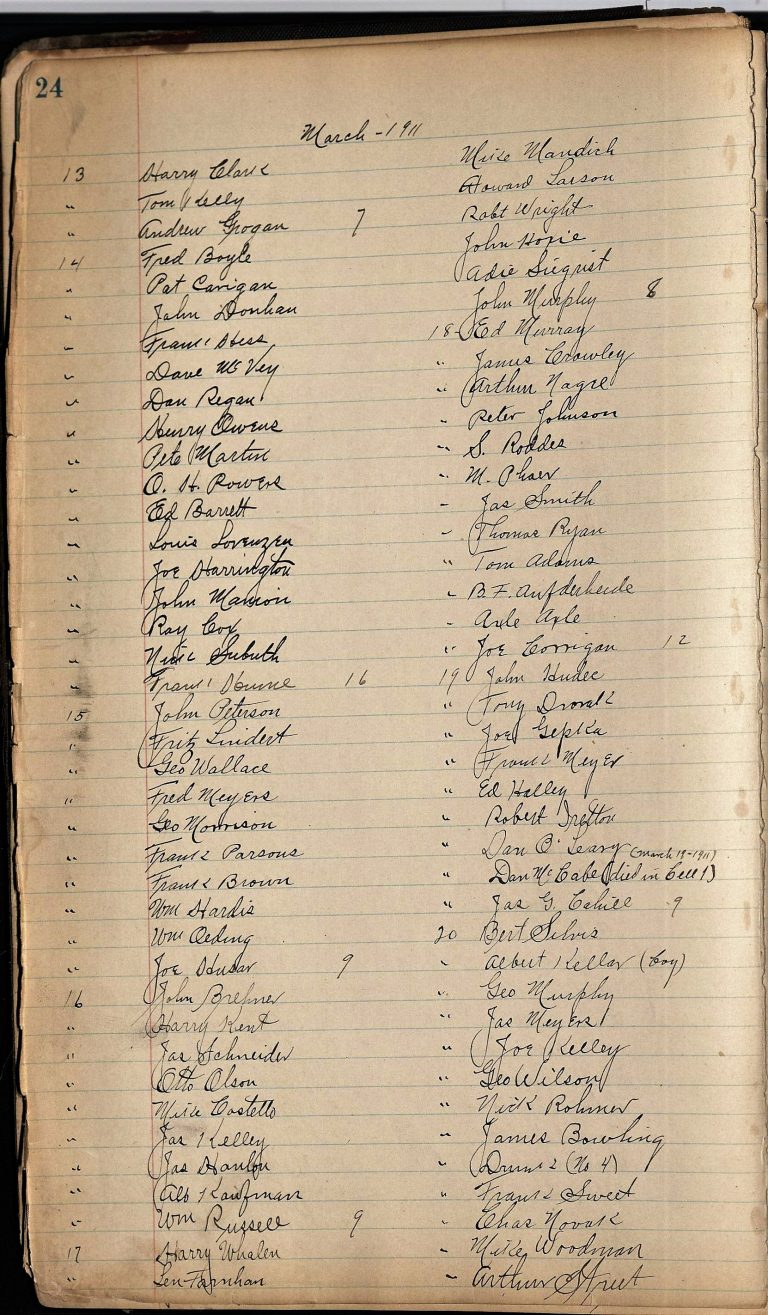 24
March - 1911
13 Harry Clark
" Tom Kelly
" Andrew Grogan 7
14 Fred Boyle
" Pat Carigan
" John Donhan
" Frank Hess
" Dave McVey
" Dan Regan
" Henry Owens
" Pete Martin
" O. H. Powers
" Ed Barrett
" Louis Lorenzen
" Joe Harrington
" John Manion
" Ray Cox
" Nick
" Frank Hume 16
15 John Peterson
" Fritz Lindert
" Geo Wallace
" Fred Meyers
" Geo Morrison
" Frank Parsons
" Frank Brown
" Wm Hardis
" Wm Oeding
" Joe Husar 9
16 John Brehner
" Harry Kent
" Jas Schneider
" Otto Olson
" Mike Costello
" Jas Kelley
" Jas Hanlon
" Alb Kaufman
" Wm Russell 9
17 Harry Whalen
" Len Farnhan
Mike Mandich
Howard Larson
Robt Wright
John
Adie Siegrist
John Murphy 8
18 Ed Murray
" James Crowley
" Arthur Nagre
" Peter Johnson
" S. Roddes
" M.
" Jas Smith
" Thomas Ryan
" Tom Adams
" B. F. Aufderheide
" Axle Axle
" Joe Corrigan 12
19 John Hudec
" Tony Dvorak
" Joe Gepka
" Frank Meyer
" Ed Halley
" Robert Tretton
" Dan O'Leary (March 19-1911)
" Dan McCabe (died in Cell 1)
" Jas G. Cahill 9
20 Bert Silvis
" Albert Kellar (Boy)
" Geo Murphy
" Jas Meyers
" Joe Kelley
" Geo Wilson
" Nick Rohmer
" James Bowling
" Drunk 2 (No 4)
" Frank Sweet
" Chas Novak
" Mike Woodman
" Arthur Street